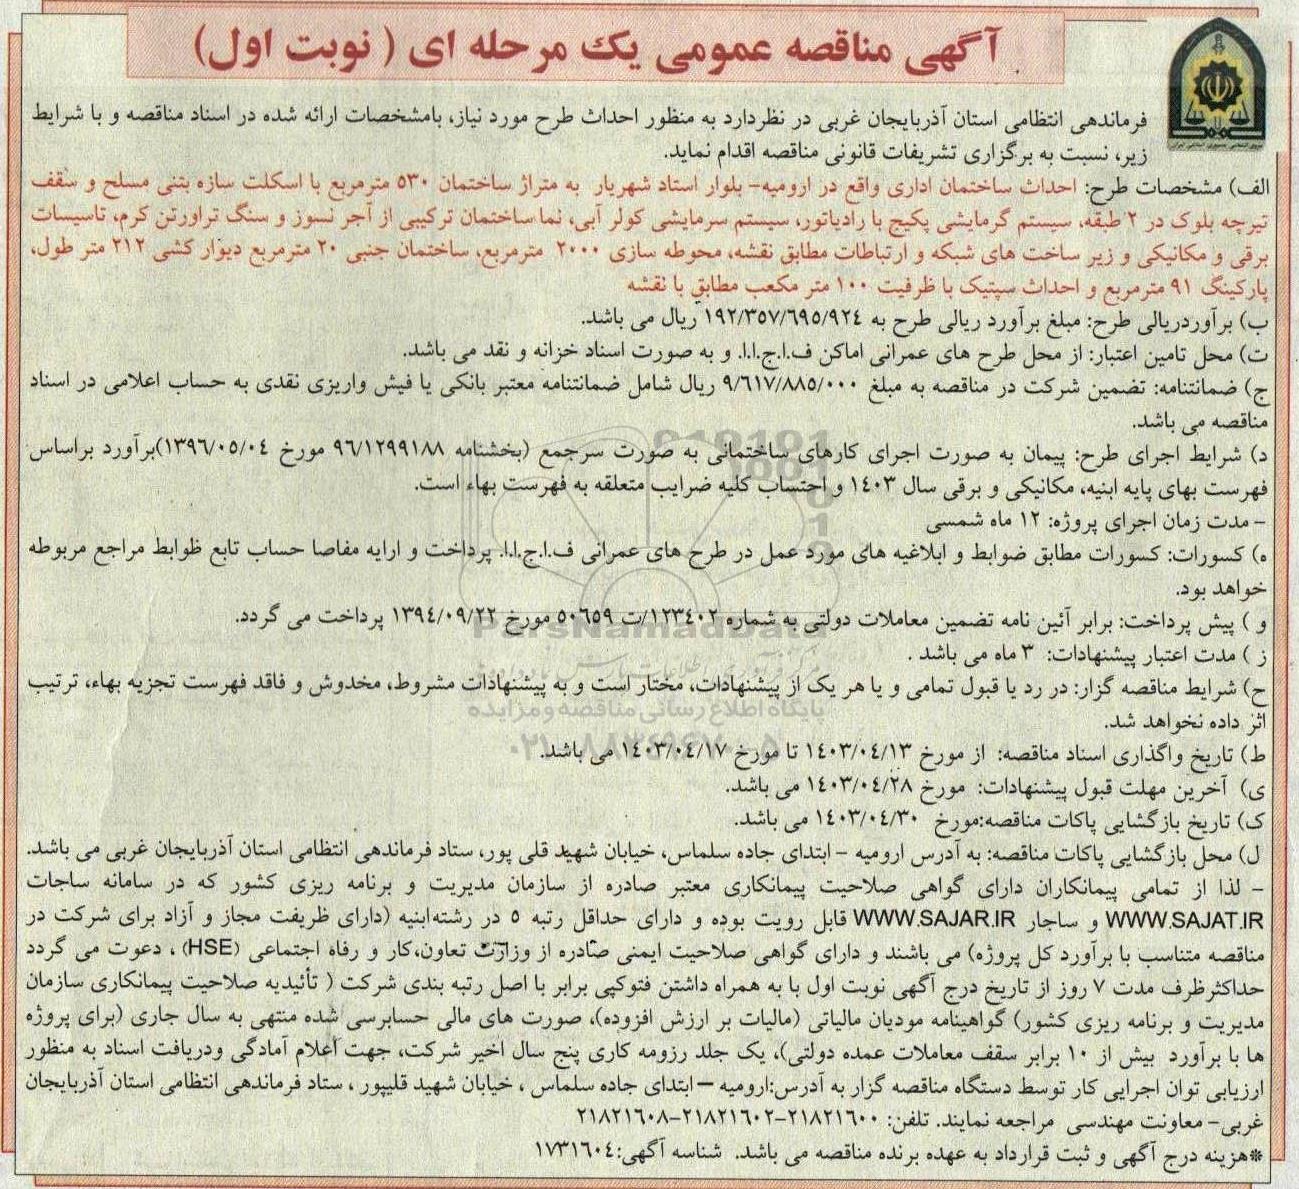 آگهی مناقصه عمومی یک مرحله ای ( نوبت اول)
فرماندهی انتظامی استان آذربایجان غربی در نظردارد به منظور احداث طرح مورد نیاز، بامشخصات ارائه شده در اسناد مناقصه و با شرایط
زیر، نسبت به برگزاری تشریفات قانونی مناقصه اقدام نماید.
الف) مشخصات طرح: احداث ساختمان اداری واقع در ارومیه- بلوار استاد شهریار به متراژ ساختمان ۵۳۰ مترمربع با اسکلت سازه بتنی مسلح و سقف
تیرچه بلوک در ۲ طبقه، سیستم گرمایشی پکیج با رادیاتور، سیستم سرمایشی کولر آبی، نما ساختمان ترکیبی از آجر نسوز و سنگ تراورتن کرم، تاسیسات
برقی و مکانیکی و زیر ساخت های شبکه و ارتباطات مطابق نقشه، محوطه سازی ۲۰۰۰ مترمربع، ساختمان جنبی ۲۰ مترمربع دیوار کشی ۲۱۲ متر طول،
پارکینگ ۹۱ مترمربع و احداث سپتیک با ظرفیت ۱۰۰ متر مکعب مطابق با نقشه
ب) برآوردریالی طرح: مبلغ برآورد ریالی طرح به ۱۹۲/۳۵۷/۶۹۵/۹۲۴ ریال می باشد.
ت) محل تامین اعتبار: از محل طرح های عمرانی اماکن ف.ا.ج.ا.ا. و به صورت اسناد خزانه و نقد می باشد.
ج) ضمانتنامه: تضمین شرکت در مناقصه به مبلغ ۹/۶۱۷/۸۸۵/۰۰۰ ریال شامل ضمانتنامه معتبر بانکی یا فیش واریزی نقدی به حساب اعلامی در اسناد
مناقصه می باشد.
د) شرایط اجرای طرح: پیمان به صورت اجرای کارهای ساختمانی به صورت سرجمع (بخشنامه ۹۶/۱۲۹۹۱۸۸ مورخ ۱۳۹۶/۰۵/۰۴)برآورد براساس
فهرست بهای پایه ابنیه، مکانیکی و برقی سال ۱۴۰۳ و احتساب کلیه ضرایب متعلقه به فهرست بهاء است.
- مدت زمان اجرای پروژه: ۱۲ ماه شمسی
ه) کسورات: کسورات مطابق ضوابط و ابلاغیه های مورد عمل در طرح های عمرانی ف.ا.ج.ا.ا. پرداخت و ارایه مفاصا حساب تابع ظوابط مراجع مربوطه
خواهد بود.
و ) پیش پرداخت: برابر آئین نامه تضمین معاملات دولتی به شماره ۱۲۳۴۰۲/ت ۵۰۶۵۹ مورخ ۱۳۹۴/۰۹/۲۲ پرداخت می گردد.
ز ) مدت اعتبار پیشنهادات: ۳ ماه می باشد .
ح) شرایط مناقصه گزار: در رد یا قبول تمامی و یا هر یک از پیشنهادات، مختار است و به پیشنهادات مشروط، مخدوش و فاقد فهرست تجزیه بهاء، ترتیب
اثر داده نخواهد شد.
ط) تاریخ واگذاری اسناد مناقصه: از مورخ ۱۴۰۳/۰۴/۱۳ تا مورخ ۱۴۰۳/۰۴/۱۷ می باشد.
ی) آخرین مهلت قبول پیشنهادات: مورخ ۱۴۰۳/۰۴/۲۸ می باشد.
ک) تاریخ بازگشایی پاکات مناقصه:مورخ ۱۴۰۳/۰۴/۳۰ می باشد.
ل) محل بازگشایی پاکات مناقصه: به آدرس ارومیه - ابتدای جاده سلماس، خیابان شهید قلی پور، ستاد فرماندهی انتظامی استان آذربایجان غربی می باشد.
- لذا از تمامی پیمانکاران دارای گواهی صلاحیت پیمانکاری معتبر صادره از سازمان مدیریت و برنامه ریزی کشور که در سامانه ساجات
WWW.SAJAT.IR و ساجار WWW.SAJAR.IR قابل رویت بوده و دارای حداقل رتبه ۵ در رشته‌ابنیه (دارای ظریفت مجاز و آزاد برای شرکت در
مناقصه متناسب با برآورد کل پروژه) می باشند و دارای گواهی صلاحیت ایمنی صادره از وزارت تعاون،کار و رفاه اجتماعی (HSE) ، دعوت می گردد
حداکثرظرف مدت ۷ روز از تاریخ درج آگهی نوبت اول با به همراه داشتن فتوکپی برابر با اصل رتبه بندی شرکت ( تأئیدیه صلاحیت پیمانکاری سازمان
مدیریت و برنامه ریزی کشور) گواهینامه مودیان مالیاتی (مالیات بر ارزش افزوده)، صورت های مالی حسابرسی شده منتهی به سال جاری (برای پروژه
ها با برآورد بیش از ۱۰ برابر سقف معاملات عمده دولتی)، یک جلد رزومه کاری پنج سال اخیر شرکت، جهت اعلام آمادگی ودریافت اسناد به منظور
ارزیابی توان اجرایی کار توسط دستگاه مناقصه گزار به آدرس:ارومیه – ابتدای جاده سلماس ، خیابان شهید قلیپور ، ستاد فرماندهی انتظامی استان آذربایجان
غربی- معاونت مهندسی مراجعه نمایند. تلفن: ۲۱۸۲۱۶۰۰-۲۱۸۲۱۶۰۲-۲۱۸۲۱۶۰۸
*هزینه درج آگهی و ثبت قرارداد به عهده برنده مناقصه می باشد. شناسه آگهی:۱۷۳۱۶۰۴
ParsNamadData
پایگاه اطلاع رسانی مناقصه و مزایده
۰۲۱-۸۸۳۴۹۶۷۰-۵